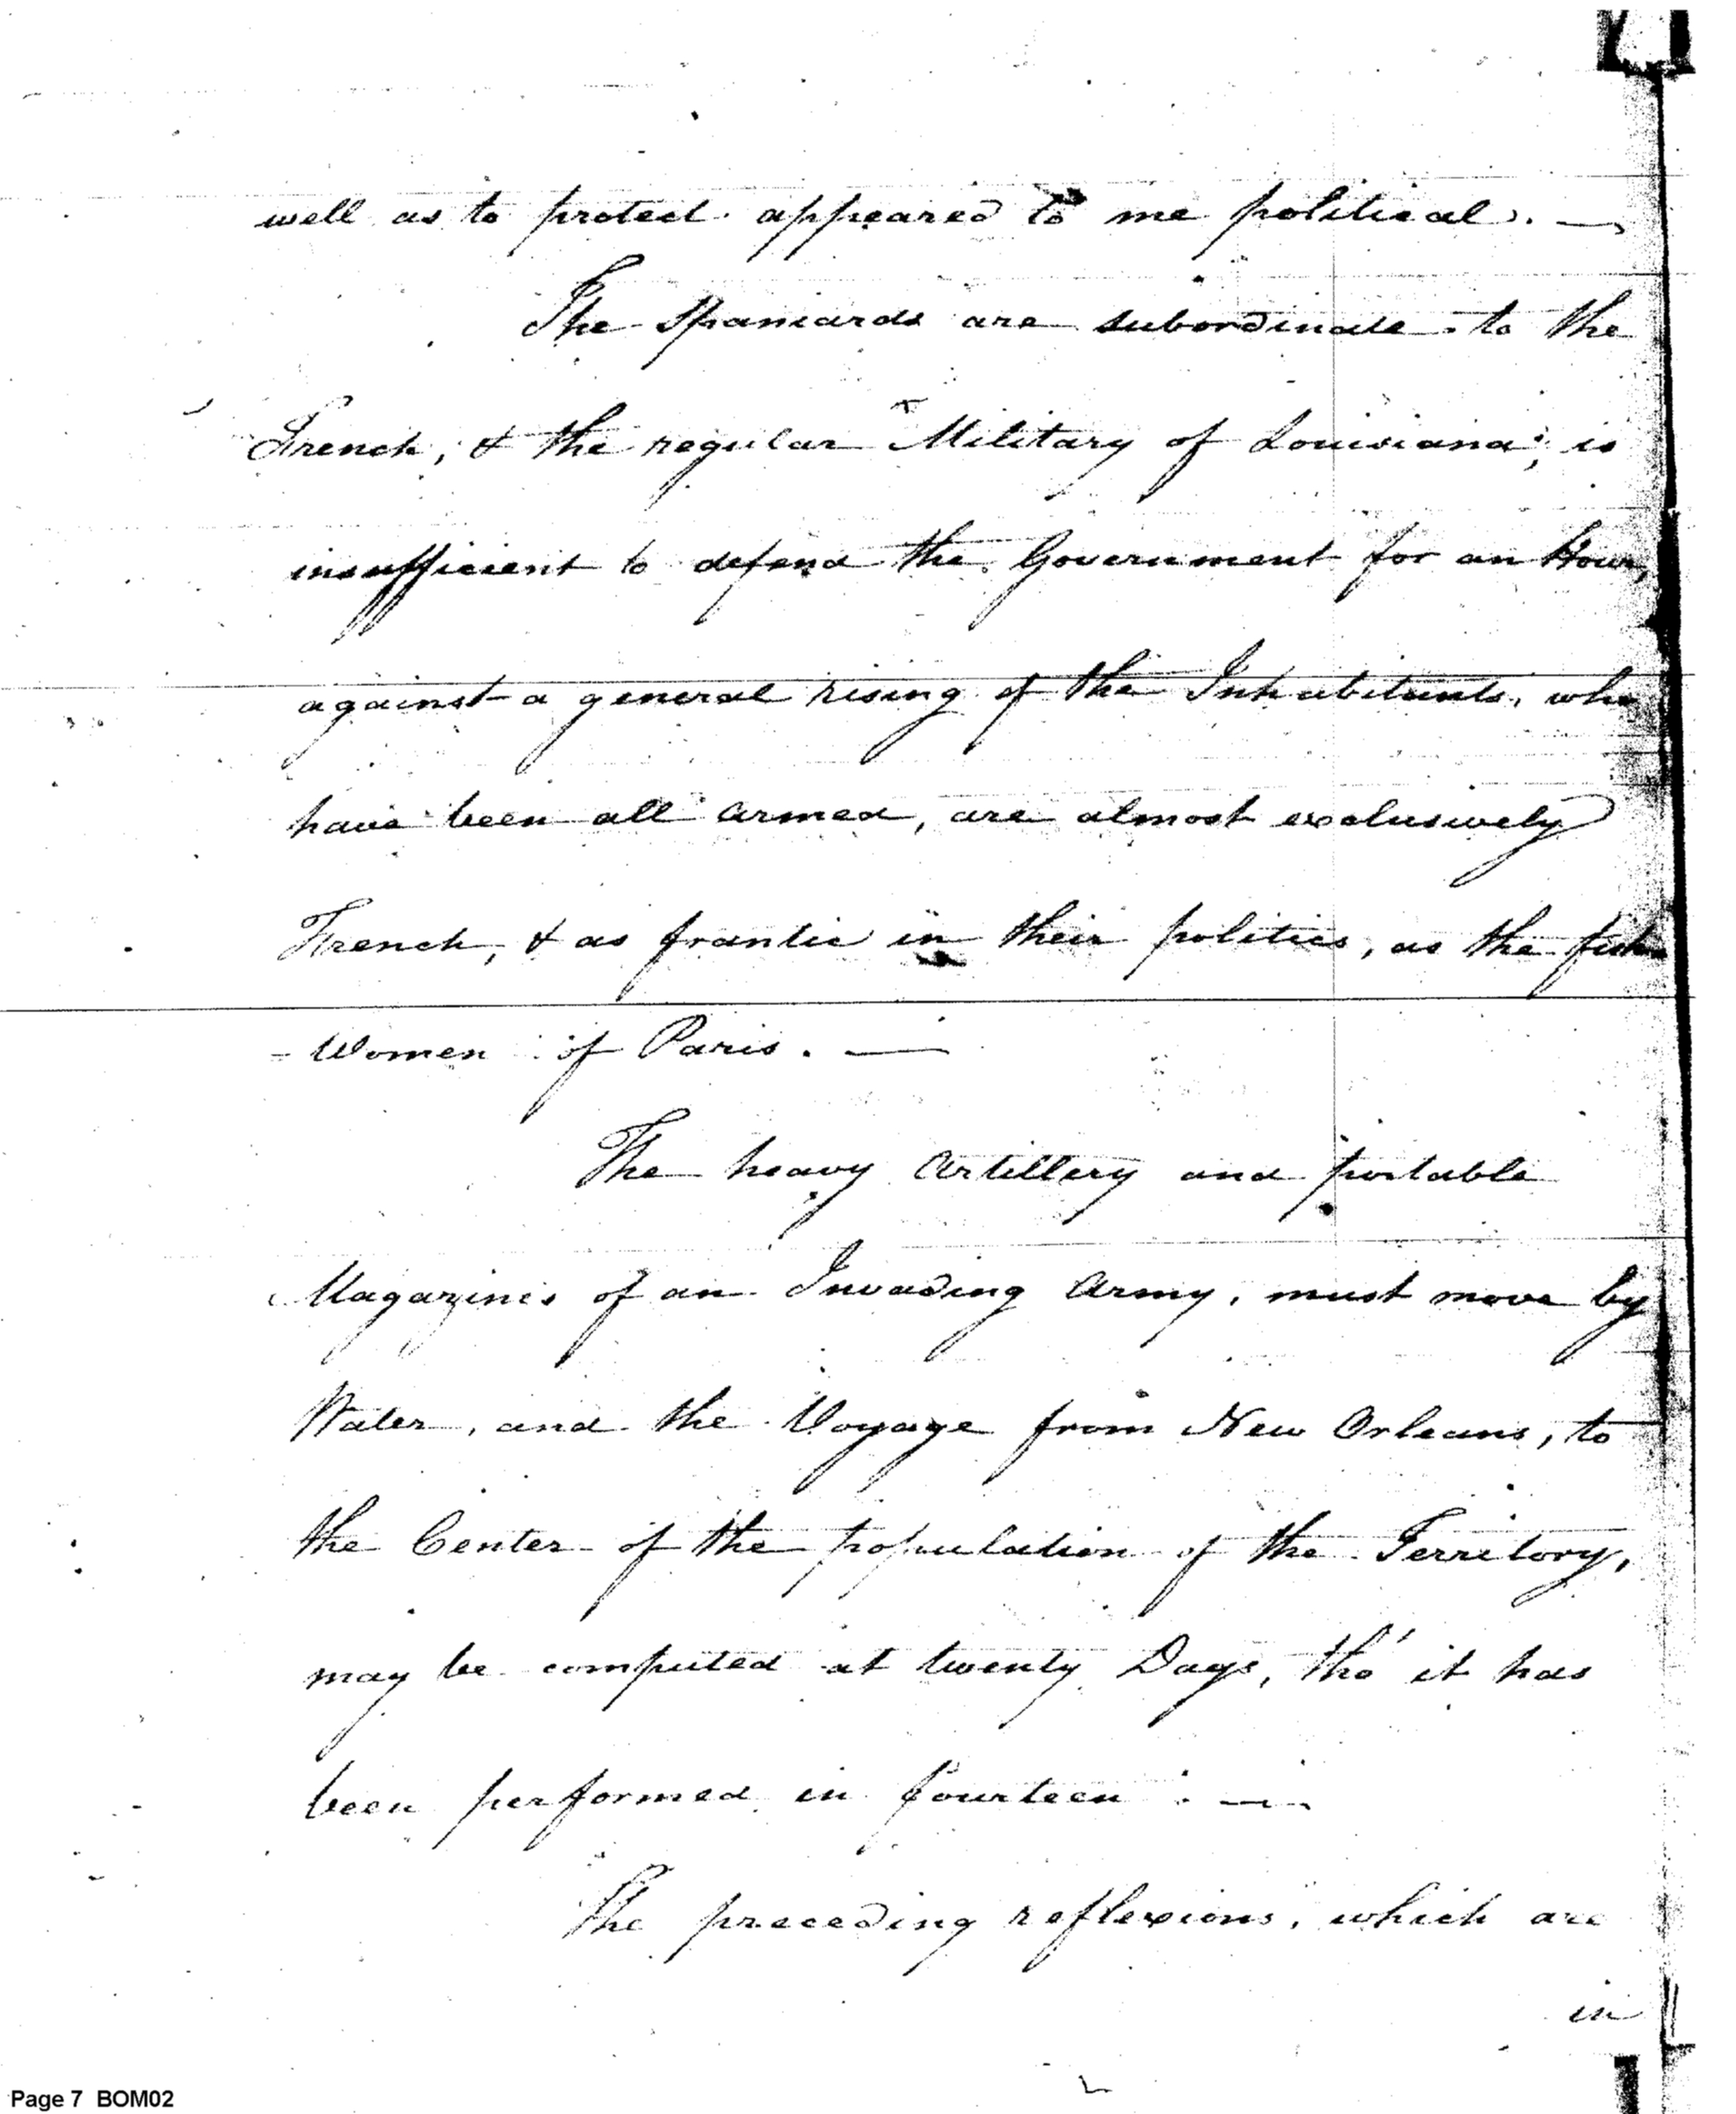 well as to protect appeared to me political. —
The Spaniards are subordinate to the
French, & the regular Military of Louisiana, is
insufficient to defend the Government for an Hour,
against a general rising of the Inhabitants, who
have been all armed, are almost exclusively
French, & as frantic in their politics, as the fish
- Women of Paris. —
The heavy Artillery and portable
Magazines of an Invading Army, must move by
Water, and the Voyage from New Orleans, to
the Center of the population of the Territory,
may be computed at twenty Days, tho' it has
been performed in fourteen. —
The preceding reflexions, which are
in
Page 7 BOM02